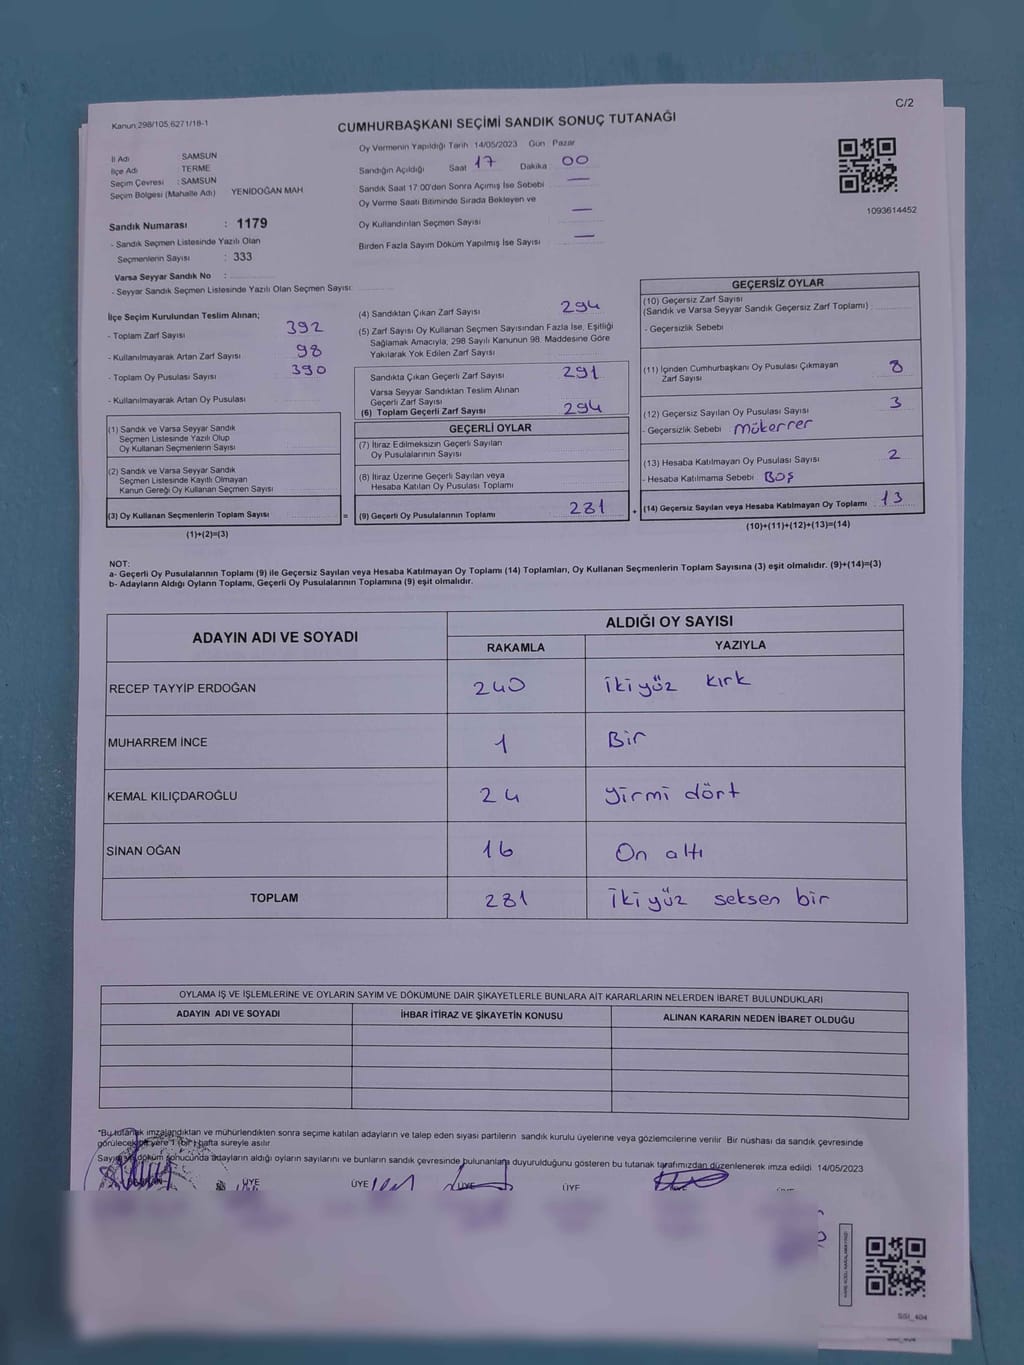 C/2
Kanun 298/105 6271/18-1
CUMHURBAŞKANI SEÇİMİ SANDIK SONUÇ TUTANAĞI
İl Adı SAMSUN
İlçe Adı : TERME
Seçim Çevresi : SAMSUN
Seçim Bölgesi (Mahalle Adı) YENİDOĞAN MAH
Sandık Numarası : 1179
- Sandık Seçmen Listesinde Yazılı Olan
Seçmenlerin Sayısı : 333
Varsa Seyyar Sandık No :
- Seyyar Sandık Seçmen Listesinde Yazılı Olan Seçmen Sayısı:
Oy Vermenin Yapıldığı Tarih 14/05/2023 Gün Pazar
Sandığın Açıldığı Saat 17 Dakika 00
Sandık Saat 17 00'den Sonra Açımış İse Sebebi —
Oy Verme Saati Bitiminde Sırada Bekleyen ve
Oy Kullandırılan Seçmen Sayısı —
Birden Fazla Sayım Döküm Yapılmış İse Sayısı —
1093614452
İlçe Seçim Kurulundan Teslim Alınan;
- Toplam Zarf Sayısı 392
- Kullanılmayarak Artan Zarf Sayısı 98
- Toplam Oy Pusulası Sayısı 390
- Kullanılmayarak Artan Oy Pusulası
(1) Sandık ve Varsa Seyyar Sandık
Seçmen Listesinde Yazılı Olup
Oy Kullanan Seçmenlerin Sayısı
(2) Sandık ve Varsa Seyyar Sandık
Seçmen Listesinde Kayıtlı Olmayan
Kanun Gereği Oy Kullanan Seçmen Sayısı
(3) Oy Kullanan Seçmenlerin Toplam Sayısı
(1)+(2)=(3)
=
(4) Sandıktan Çıkan Zarf Sayısı 294
(5) Zarf Sayısı Oy Kullanan Seçmen Sayısından Fazla İse, Eşitliği
Sağlamak Amacıyla, 298 Sayılı Kanunun 98. Maddesine Göre
Yakılarak Yok Edilen Zarf Sayısı
Sandıkta Çıkan Geçerli Zarf Sayısı 291
Varsa Seyyar Sandıktan Teslim Alınan
Geçerli Zarf Sayısı
(6) Toplam Geçerli Zarf Sayısı 294
GEÇERLİ OYLAR
(7) İtiraz Edilmeksizin Geçerli Sayılan
Oy Pusulalarının Sayısı
(8) İtiraz Üzerine Geçerli Sayılan veya
Hesaba Katılan Oy Pusulası Toplamı
(9) Geçerli Oy Pusulalarının Toplamı 281
+
GEÇERSİZ OYLAR
(10) Geçersiz Zarf Sayısı
(Sandık ve Varsa Seyyar Sandık Geçersiz Zarf Toplamı)
- Geçersizlik Sebebi
(11) İçinden Cumhurbaşkanı Oy Pusulası Çıkmayan
Zarf Sayısı 8
(12) Geçersiz Sayılan Oy Pusulası Sayısı 3
- Geçersizlik Sebebi mükerrer
(13) Hesaba Katılmayan Oy Pusulası Sayısı 2
- Hesaba Katılmama Sebebi BOŞ
(14) Geçersiz Sayılan veya Hesaba Katılmayan Oy Toplamı 13
(10)+(11)+(12)+(13)=(14)
NOT:
a- Geçerli Oy Pusulalarının Toplamı (9) ile Geçersiz Sayılan veya Hesaba Katılmayan Oy Toplamı (14) Toplamları, Oy Kullanan Seçmenlerin Toplam Sayısına (3) eşit olmalıdır. (9)+(14)=(3)
b- Adayların Aldığı Oyların Toplamı, Geçerli Oy Pusulalarının Toplamına (9) eşit olmalıdır.
ADAYIN ADI VE SOYADI ALDIĞI OY SAYISI
RAKAMLA YAZIYLA
RECEP TAYYİP ERDOĞAN 240 iki yüz kırk
MUHARREM İNCE 1 Bir
KEMAL KILIÇDAROĞLU 24 yirmi dört
SİNAN OĞAN 16 On altı
TOPLAM 281 İki yüz seksen bir
OYLAMA İŞ VE İŞLEMLERİNE VE OYLARIN SAYIM VE DÖKÜMÜNE DAİR ŞİKAYETLERLE BUNLARA AİT KARARLARIN NELERDEN İBARET BULUNDUKLARI
ADAYIN ADI VE SOYADI İHBAR İTİRAZ VE ŞİKAYETİN KONUSU ALINAN KARARIN NEDEN İBARET OLDUĞU
*Bu tutanak imzalandıktan ve mühürlendikten sonra seçime katılan adayların ve talep eden siyasi partilerin sandık kurulu üyelerine veya gözlemcilerine verilir Bir nüshası da sandık çevresinde
görülecek bir yere 1 (bir) hafta süreyle asılır
Sayım ve döküm sonucunda adayların aldığı oyların sayılarını ve bunların sandık çevresinde bulunanlara duyurulduğunu gösteren bu tutanak tarafımızdan düzenlenerek imza edildi 14/05/2023
ÜYE ÜYE ÜYE ÜYE
SSI_404